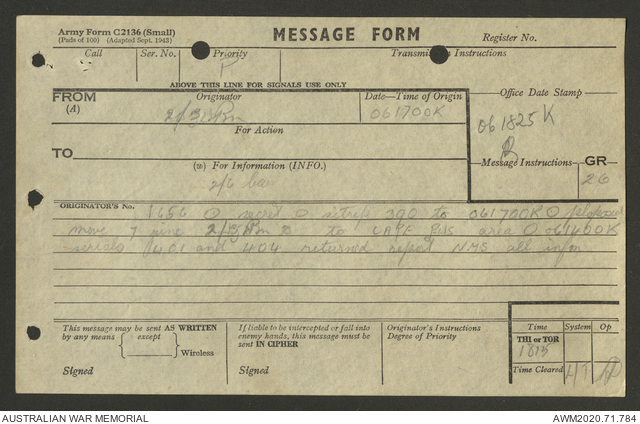 Army Form C2136 (Small)
(Pads of 100) (Adapted Sept. 1943)
MESSAGE FORM
Register No.
Call Ser. No. Priority Transmission Instructions
P
ABOVE THIS LINE FOR SIGNALS USE ONLY
FROM
(A)
Originator
Date—Time of Origin
061700K
Office Date Stamp
061825K
For Action
TO
Message Instructions
GR
26
(w) For Information (INFO.)
2/6
ORIGINATOR'S No.
1656 O secret O sitrep 390 to 061700K O
move 7 2/3 to area O 061600K
serials 401 and 404 returned report NMS all
This message may be sent AS WRITTEN
by any means except
Wireless
Signed
If liable to be intercepted or fall into
enemy hands, this message must be
sent IN CIPHER
Signed
Originator's Instructions
Degree of Priority
Time System Op
THI or TOR
1815
Time Cleared
AUSTRALIAN WAR MEMORIAL
AWM2020.71.784